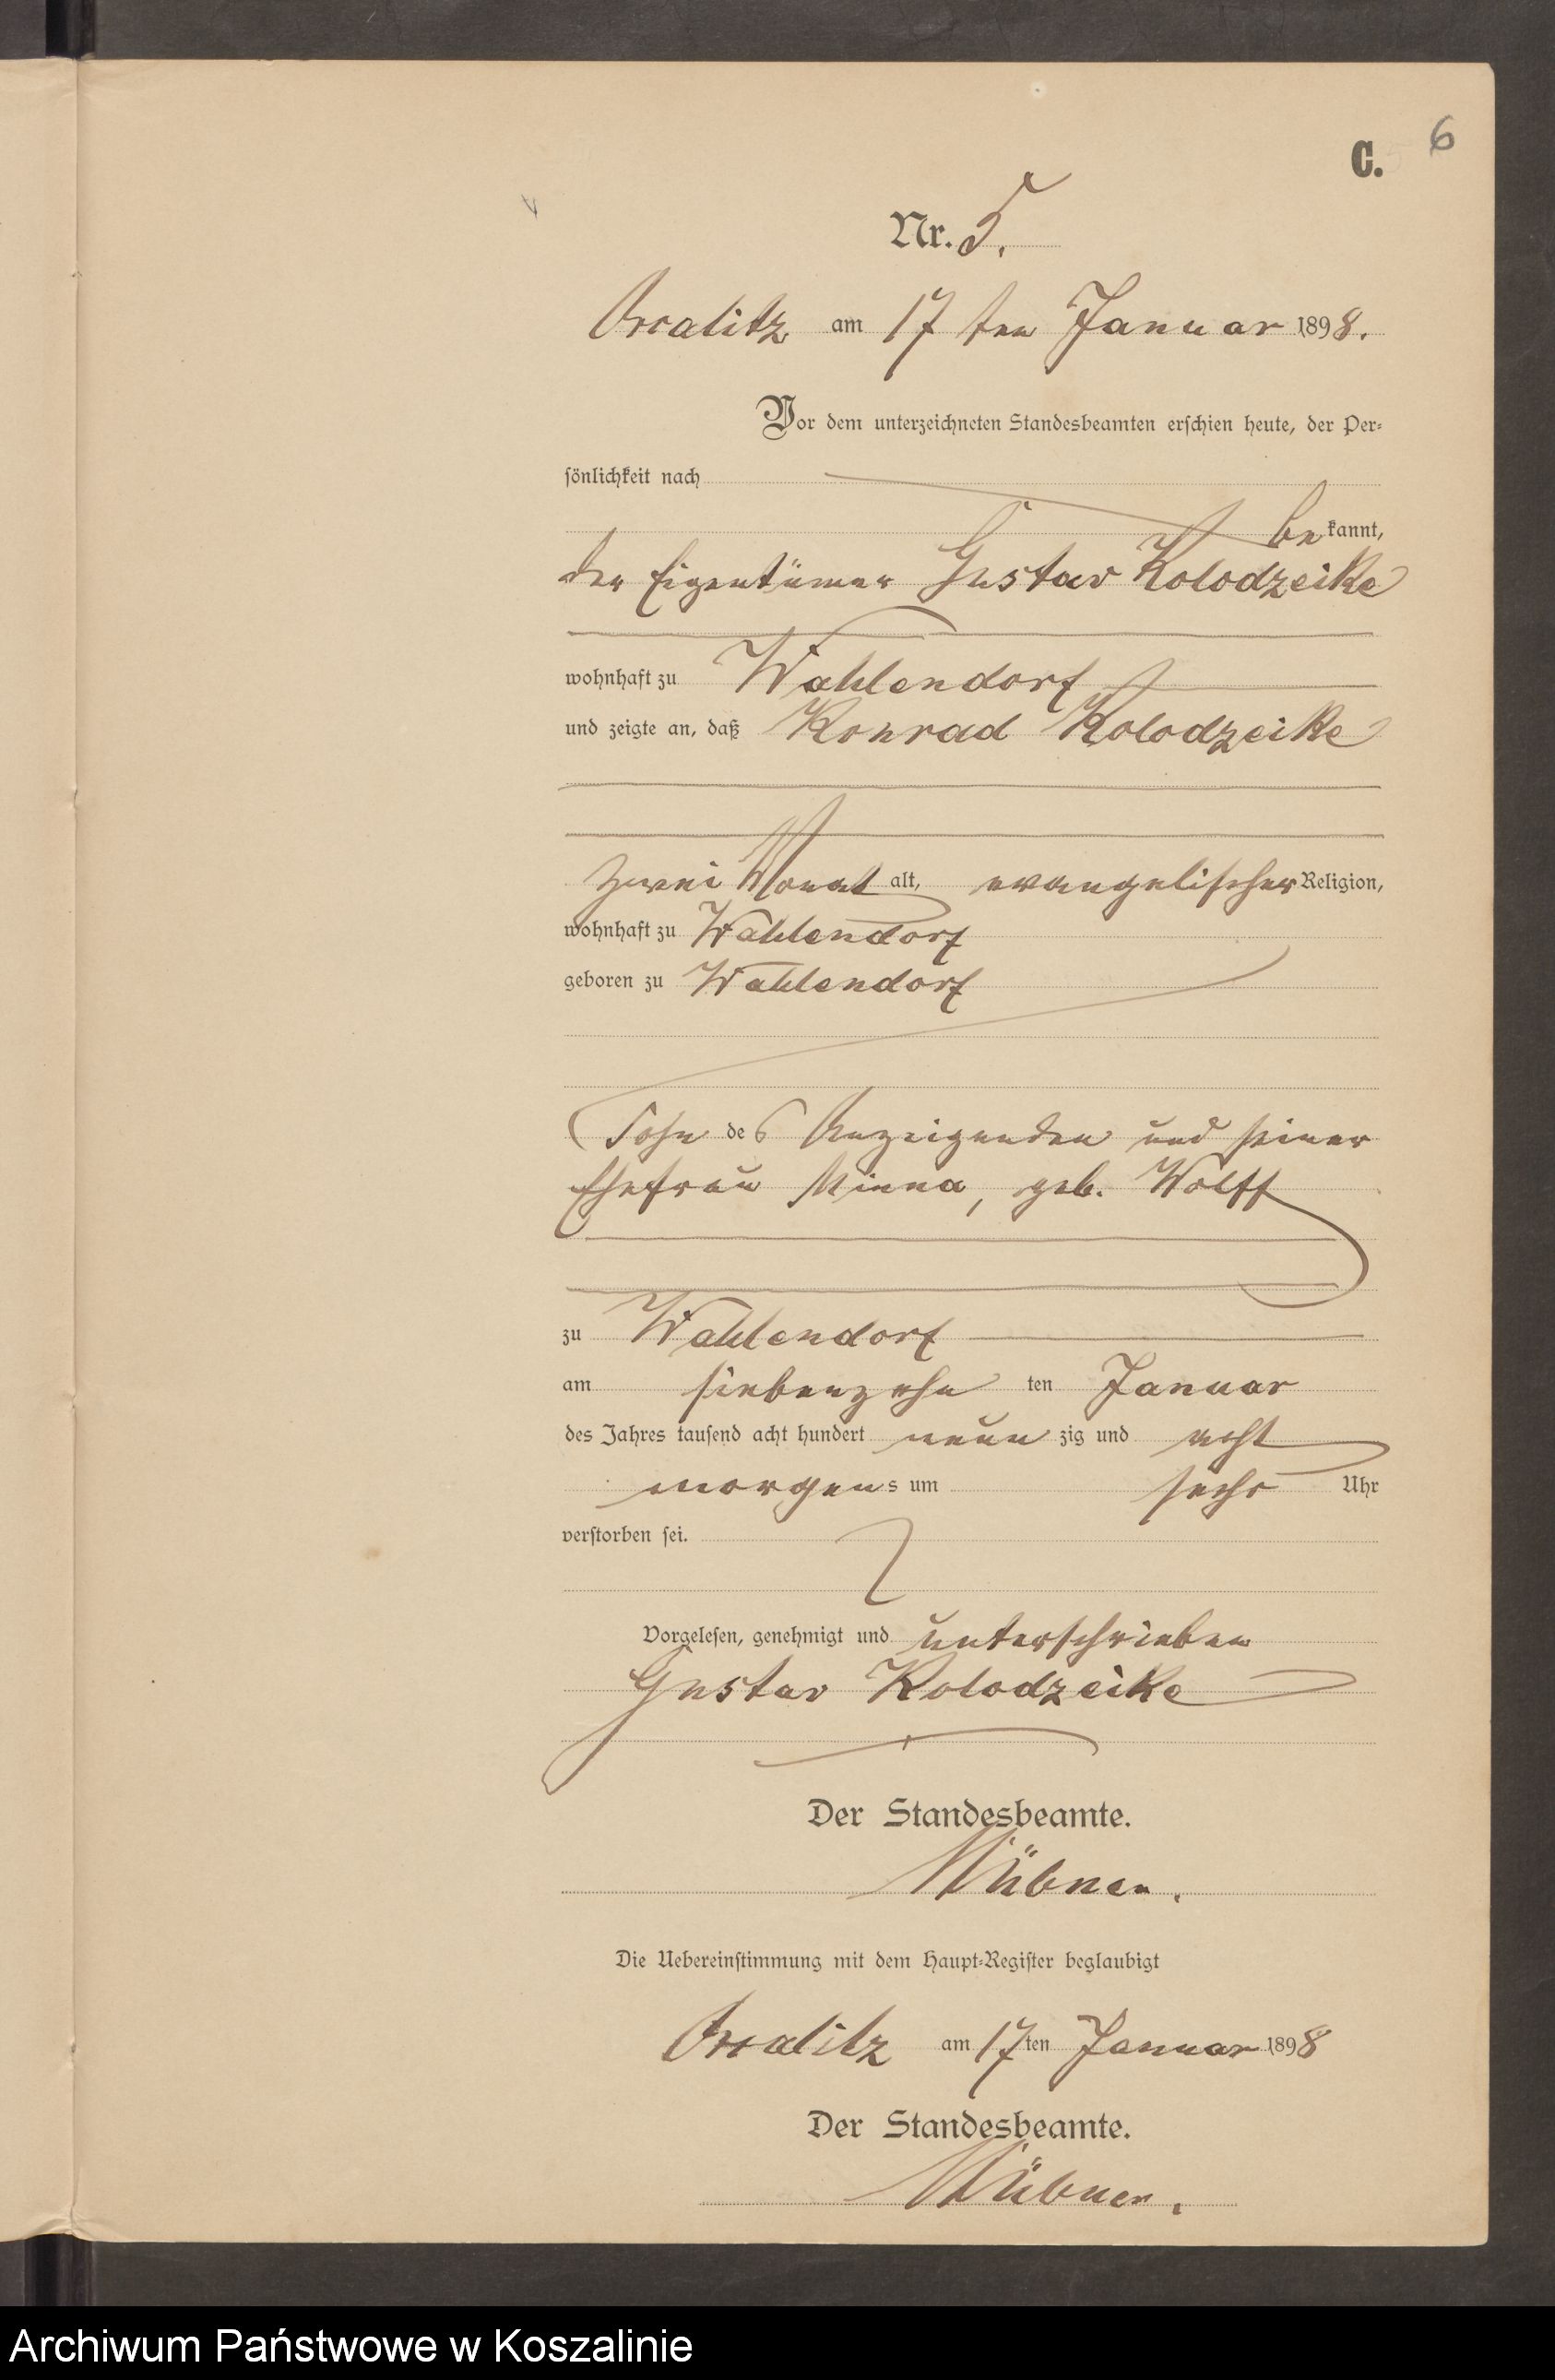 6
C.
Nr. 5.
am 17 ten Januar 1898.
Vor dem unterzeichneten Standesbeamten erschien heute, der Per-
sönlichkeit nach
bekannt,
der Eigentümer Gustav Kolodzeike
wohnhaft zu Wahlendorf
und zeigte an, daß Konrad Kolodzeike
zwei Monat alt, evangelischer Religion,
wohnhaft zu Wahlendorf
geboren zu Wahlendorf
Sohn des Anzeigenden und seiner
Ehefrau Minna, geb. Wolff
zu Wahlendorf
am siebenzehn ten Januar
des Jahres tausend acht hundert neun zig und acht
morgens um sechs Uhr
verstorben sei.
Vorgelesen, genehmigt und unterschrieben
Gustav Kolodzeike
Der Standesbeamte.
Die Uebereinstimmung mit dem Haupt-Register beglaubigt
am 17ten Januar 1898
Der Standesbeamte.
Archiwum Państwowe w Koszalinie